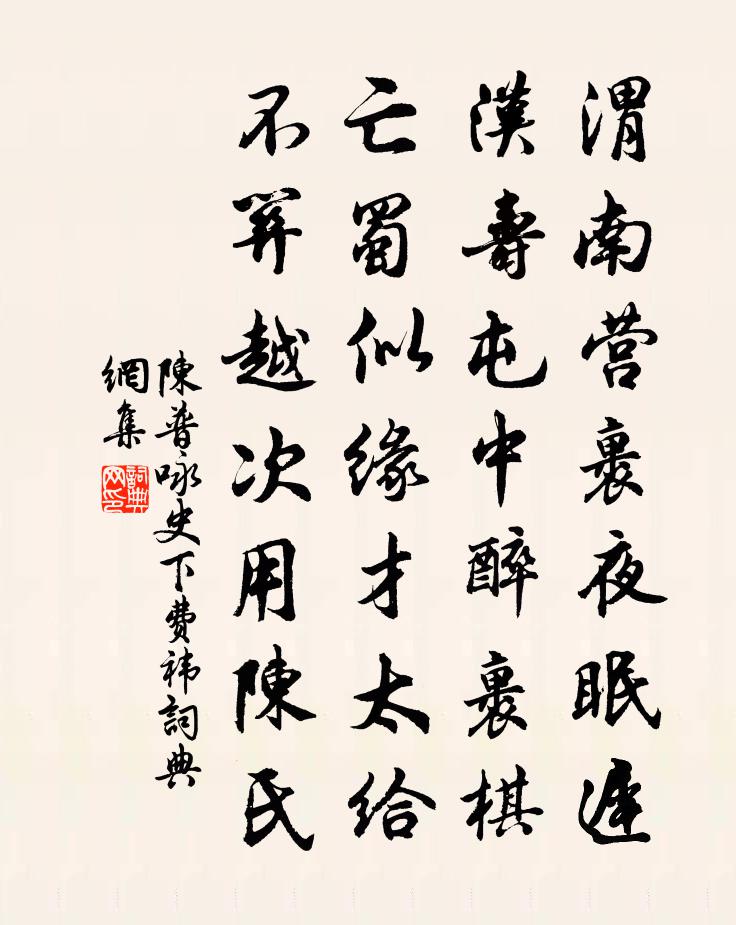 渭南营裹夜眠遲
漢壽屯中醉裹棋
亡蜀似緣才太给
不算越次用陳氏
陳普咏史下费祎詞典
網集
詞典網印